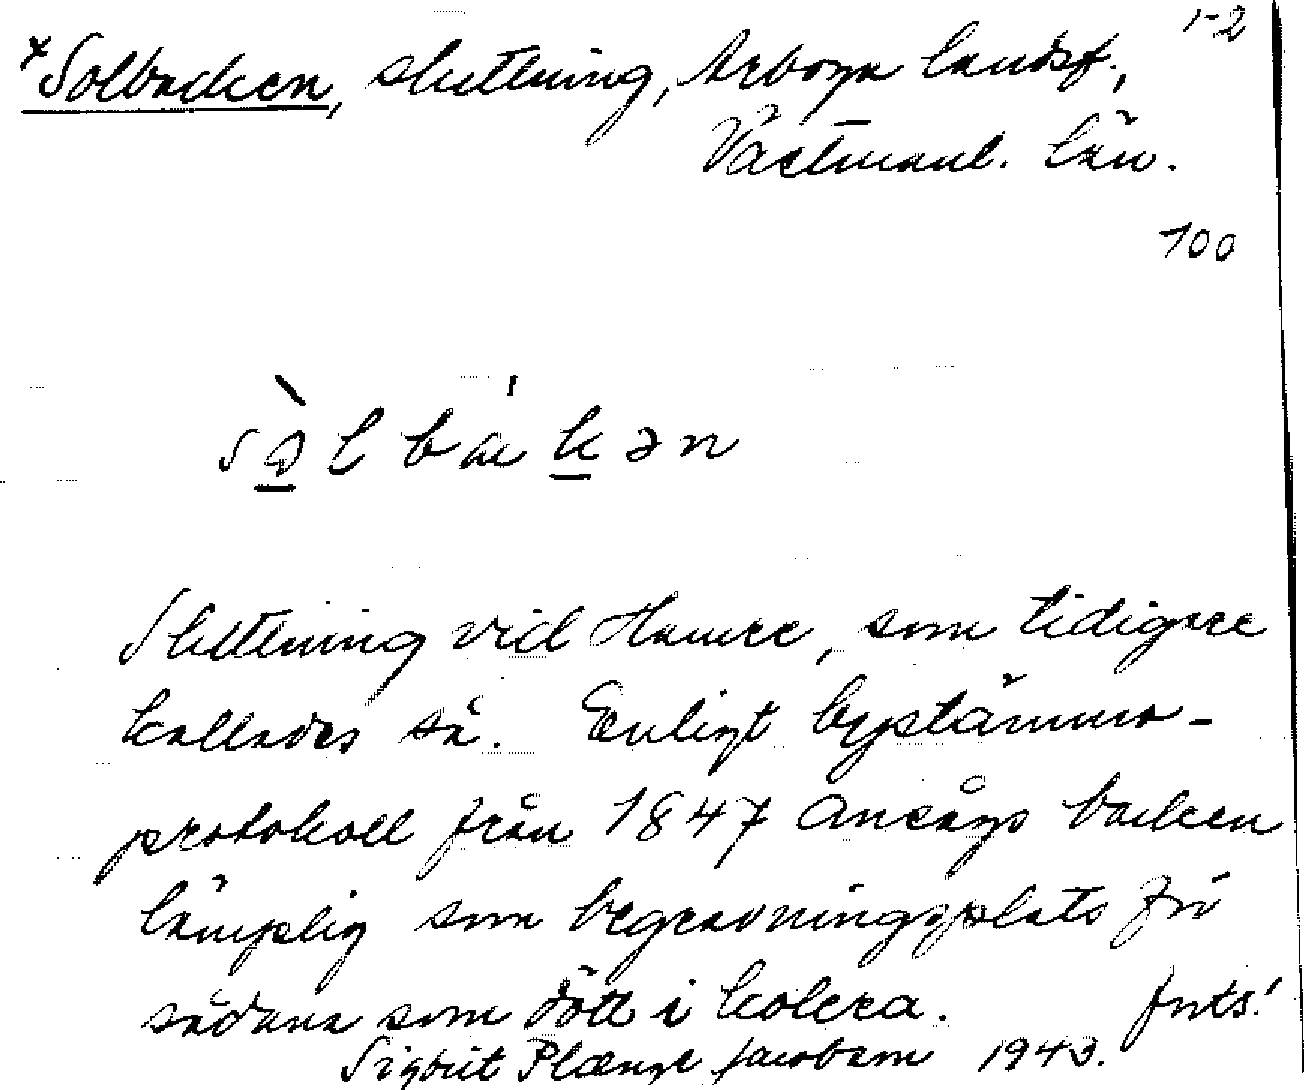 1-2
*Solbacken, sluttning, Arboga landsf.,
Västmanl. län.
100
sòlbákən
Sluttning vid Hamre, som tidigare
kallades så. Enligt bystämmo-
protokoll från 1847 ansågs backen
lämplig som begravningsplats för
sådana som dött i kolera. forts!
Sigbrit Plænge Jacobson 1943.